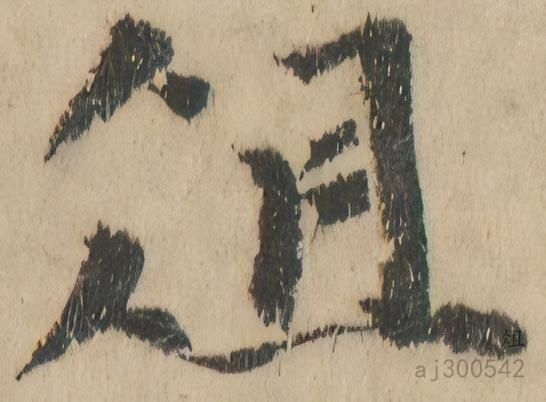 俎
俎
aj300542